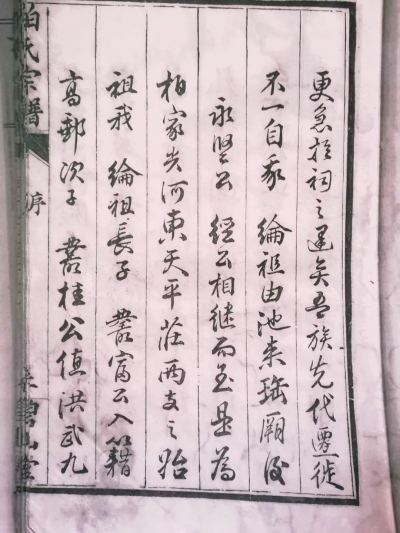 更急於祠之建矣吾族先代遷徙
不一自我 綸祖由池來瑶厰後
永公 經公相繼而至是為
柏家河東天平莊兩支之始
祖我 綸祖長子 叢富公入籍
高郵次子 叢桂公值洪武九
柏氏宗譜 序 碧山堂